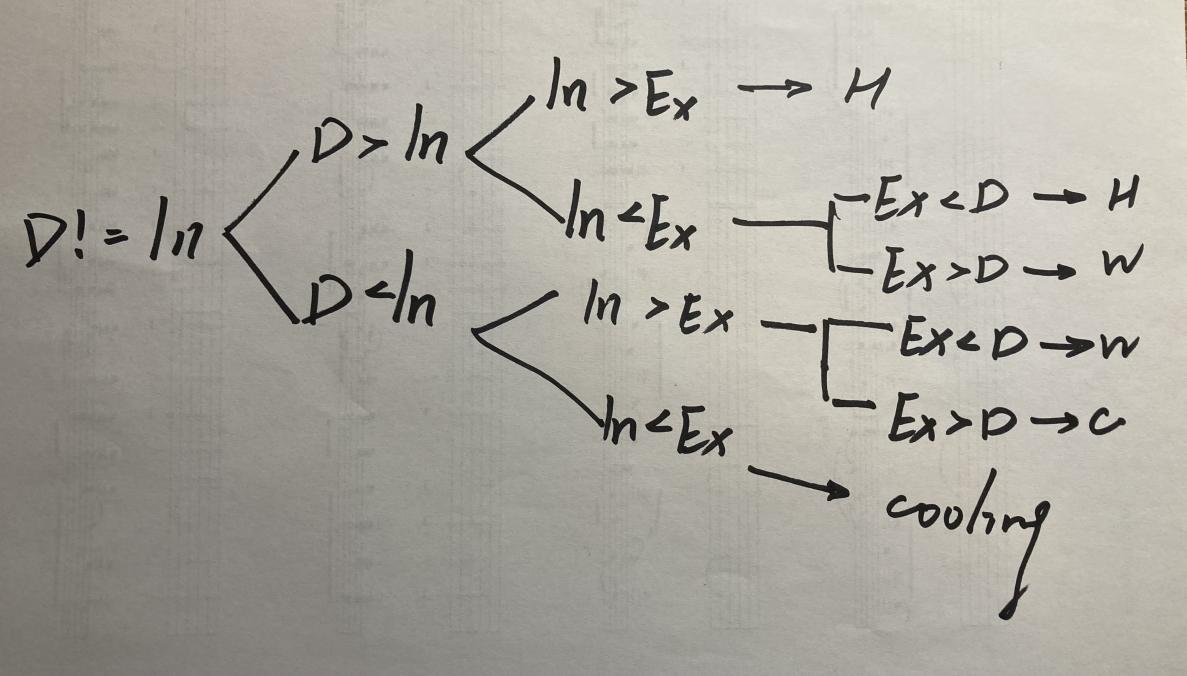 D != In
D > In
In > Ex → H
In < Ex
Ex < D → H
Ex > D → W
D < In
In > Ex
Ex < D → W
Ex > D → C
In < Ex → cooling